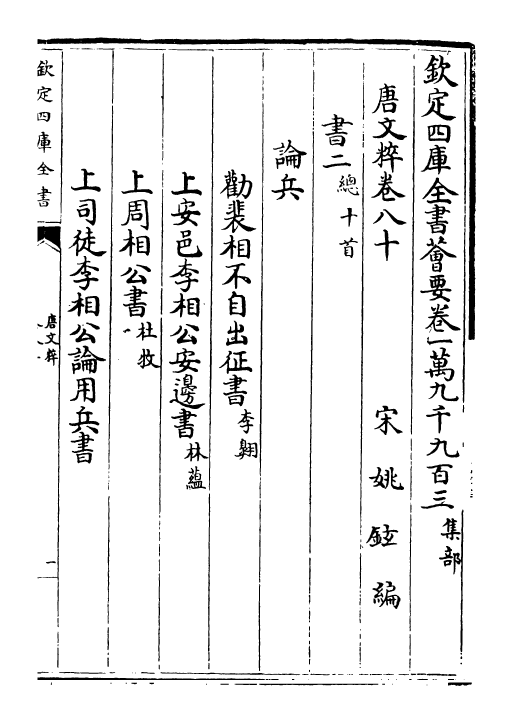 欽定四庫全書薈要卷一萬九千九百三 集部
唐文粹卷八十 宋 姚鉉 編
書二 總十首
論兵
勸裴相不自出征書 李翺
上安邑李相公安邊書 林蘊
上周相公書一 杜牧
上司徒李相公論用兵書
欽定四庫全書
唐文粹
一